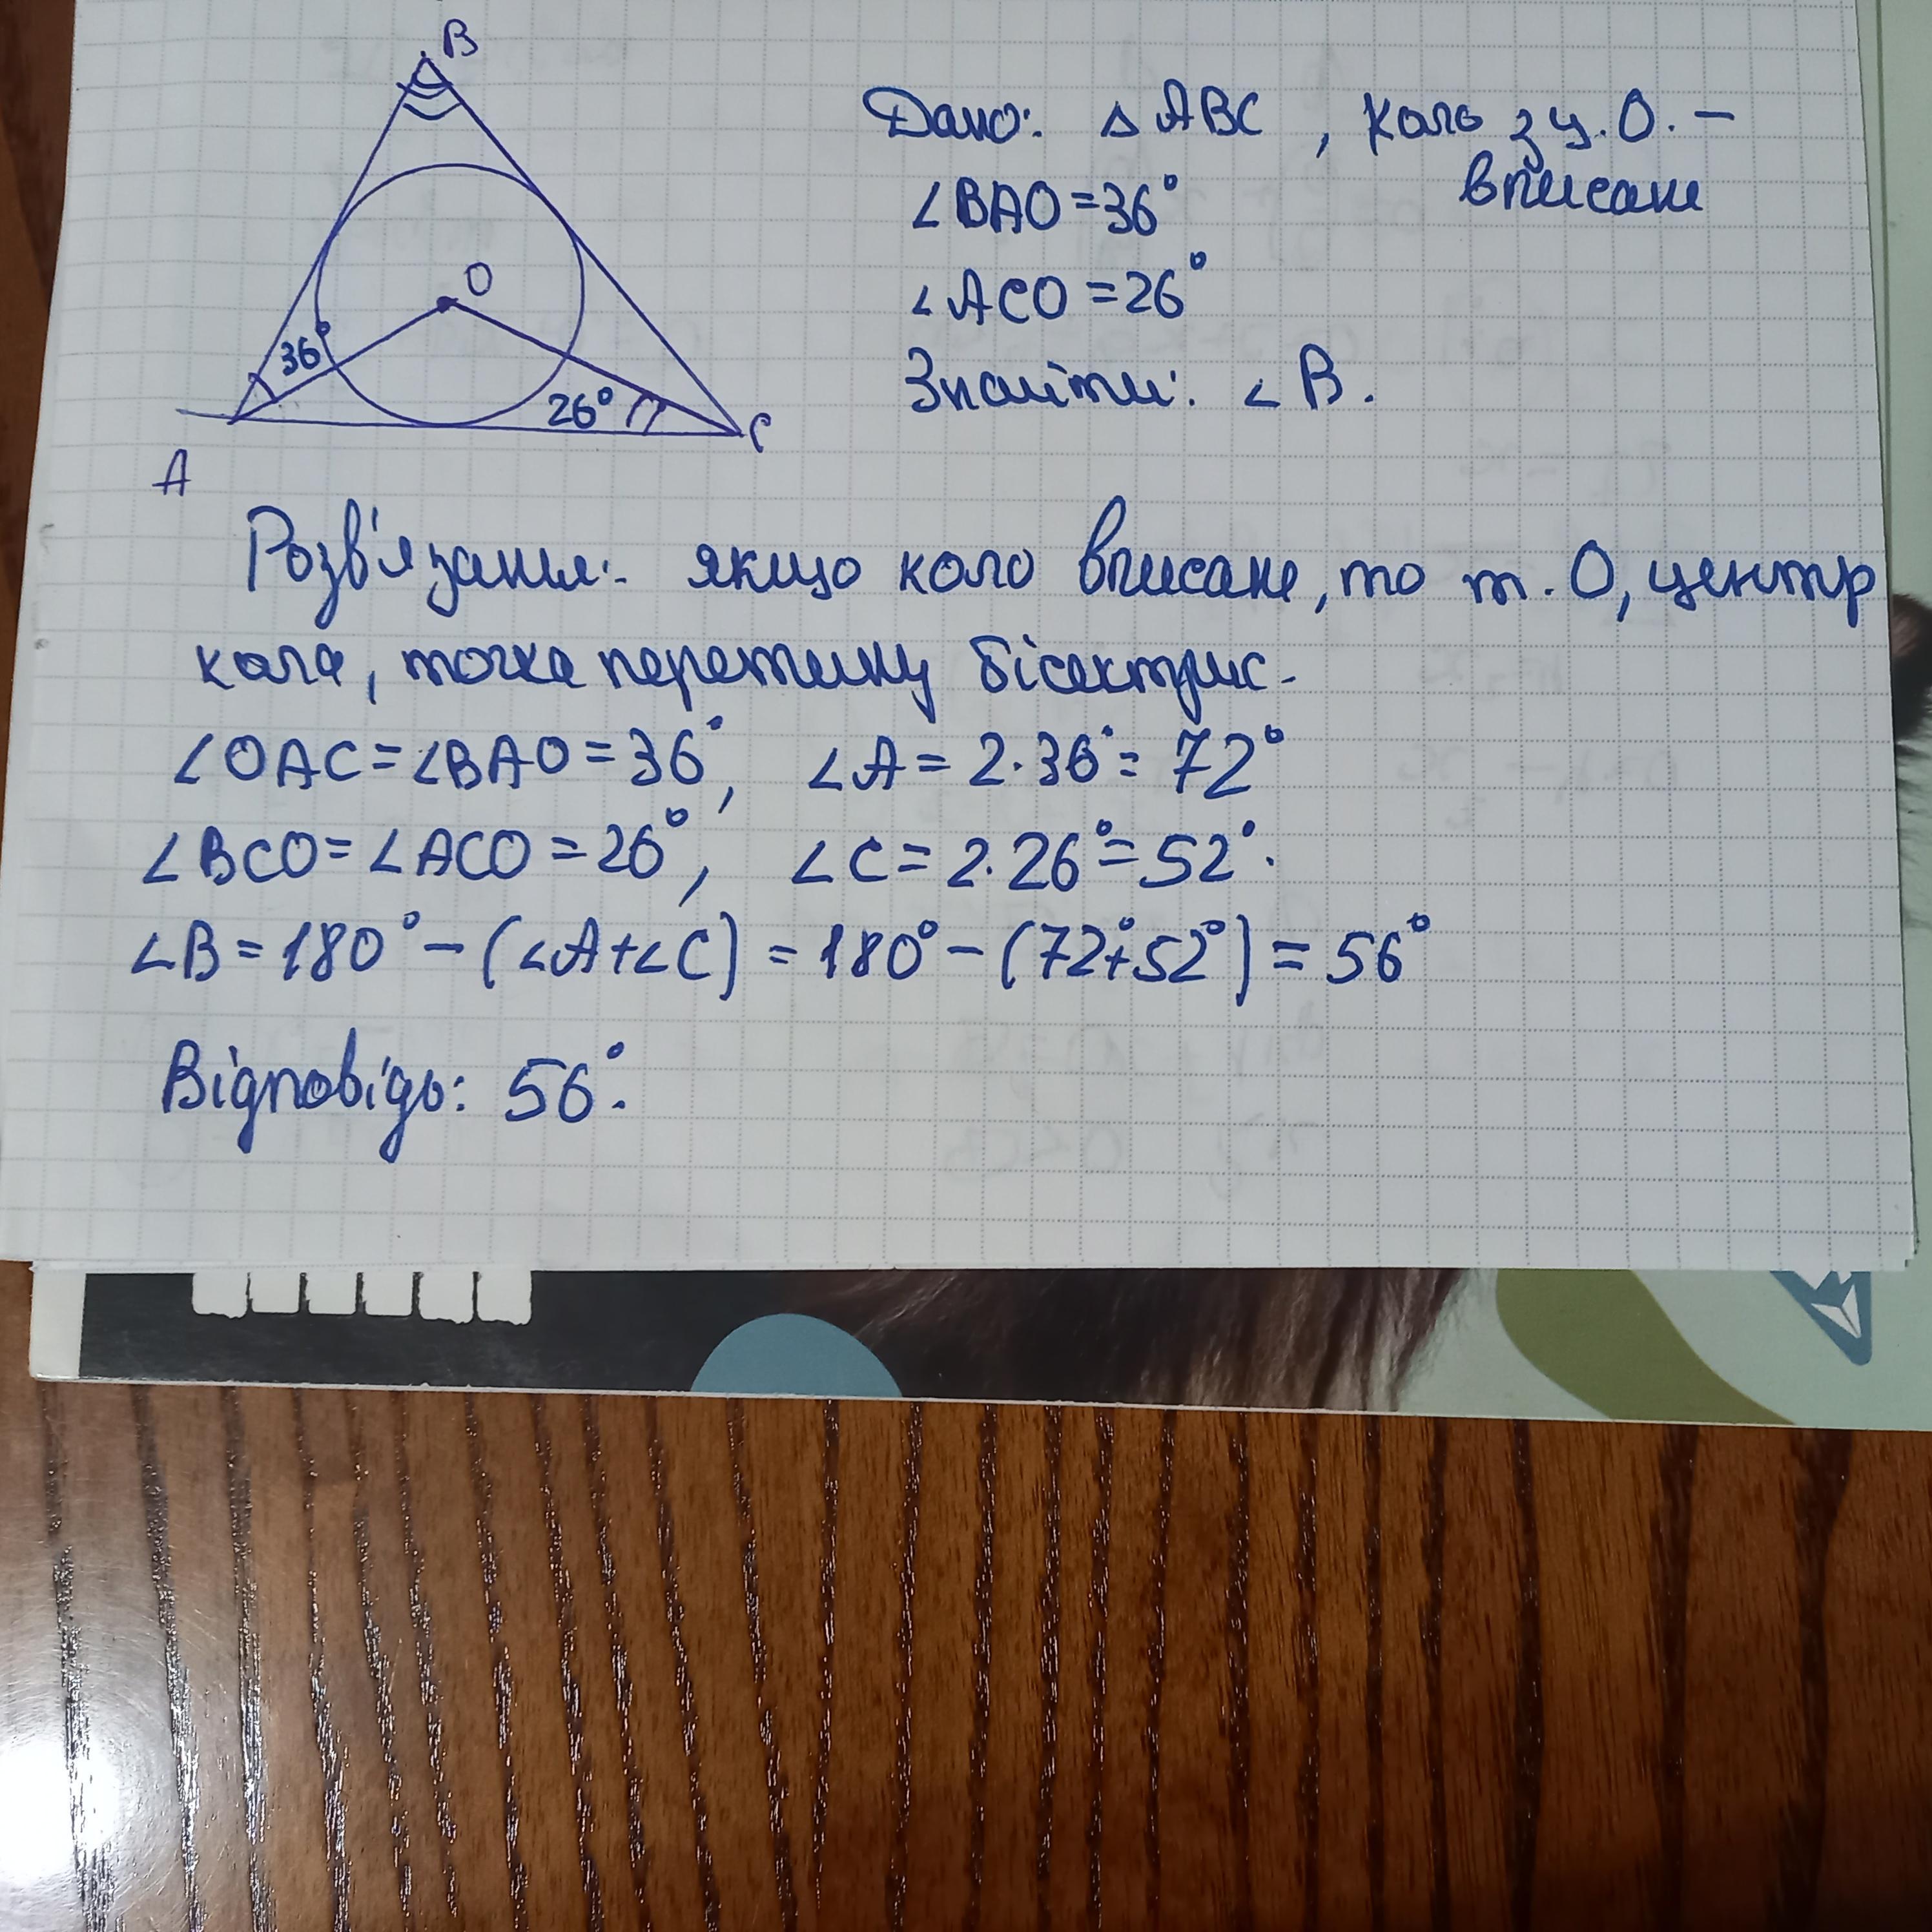 B
O
36°
26°
A
C
Дано: △ABC, коло з ц. O. –
вписане
∠BAO=36°
∠ACO=26°
Знайти: ∠B.
Розв'язання:. якщо коло вписане, то т. O, центр
кола, точка перетину бісектрис.
∠OAC=∠BAO=36°, ∠A=2·36°=72°
∠BCO=∠ACO=26°, ∠C=2·26°=52°.
∠B=180°-(∠A+∠C)=180°-(72°+52°)=56°
Відповідь: 56°.